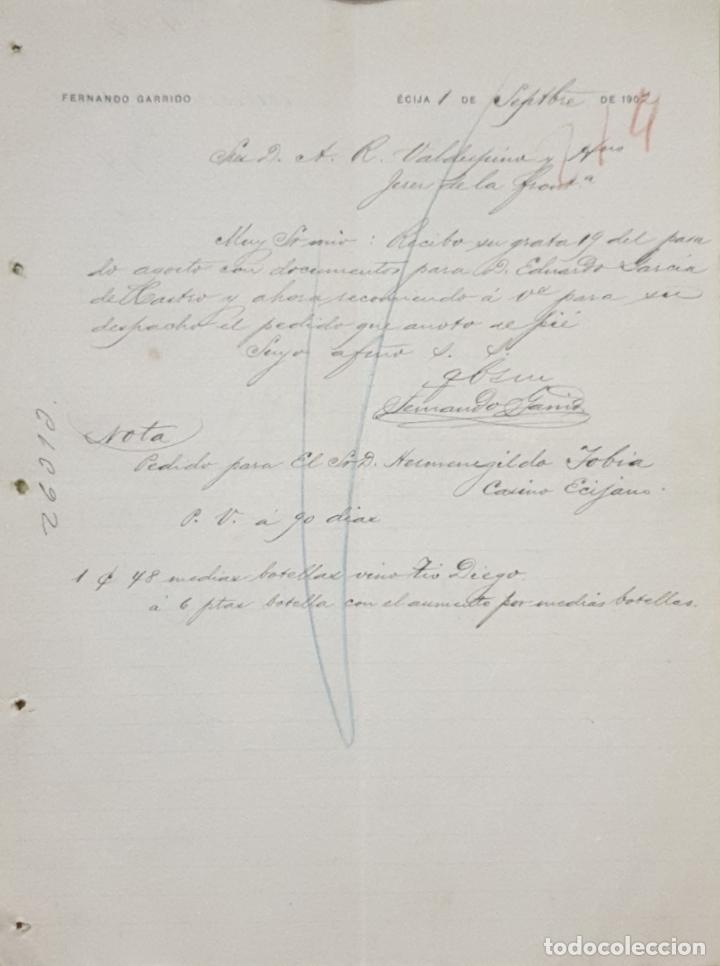 FERNANDO GARRIDO
ÉCIJA 1 DE Septbre DE 190
Sres D. A. R. Valdespino y Hnos
Jerez de la Front.a
Muy Sr mio: Recibo su grata 19 del pasa
do agosto con documentos para D. Eduardo Garcia
de Castro y ahora recomiendo á Vd para su
despacho el pedido que anoto al pié
Suyo afmo S. S.
qbsm
Fernando Garrido
Nota
Pedido para El Sr D. Hermenegildo Tobia
Casino Ecijano.
P. V. á 90 dias
1 ¢ 48 medias botellas vino Tio Diego.
á 6 ptas botella con el aumento por medias botellas.
todocoleccion
todocoleccion.net